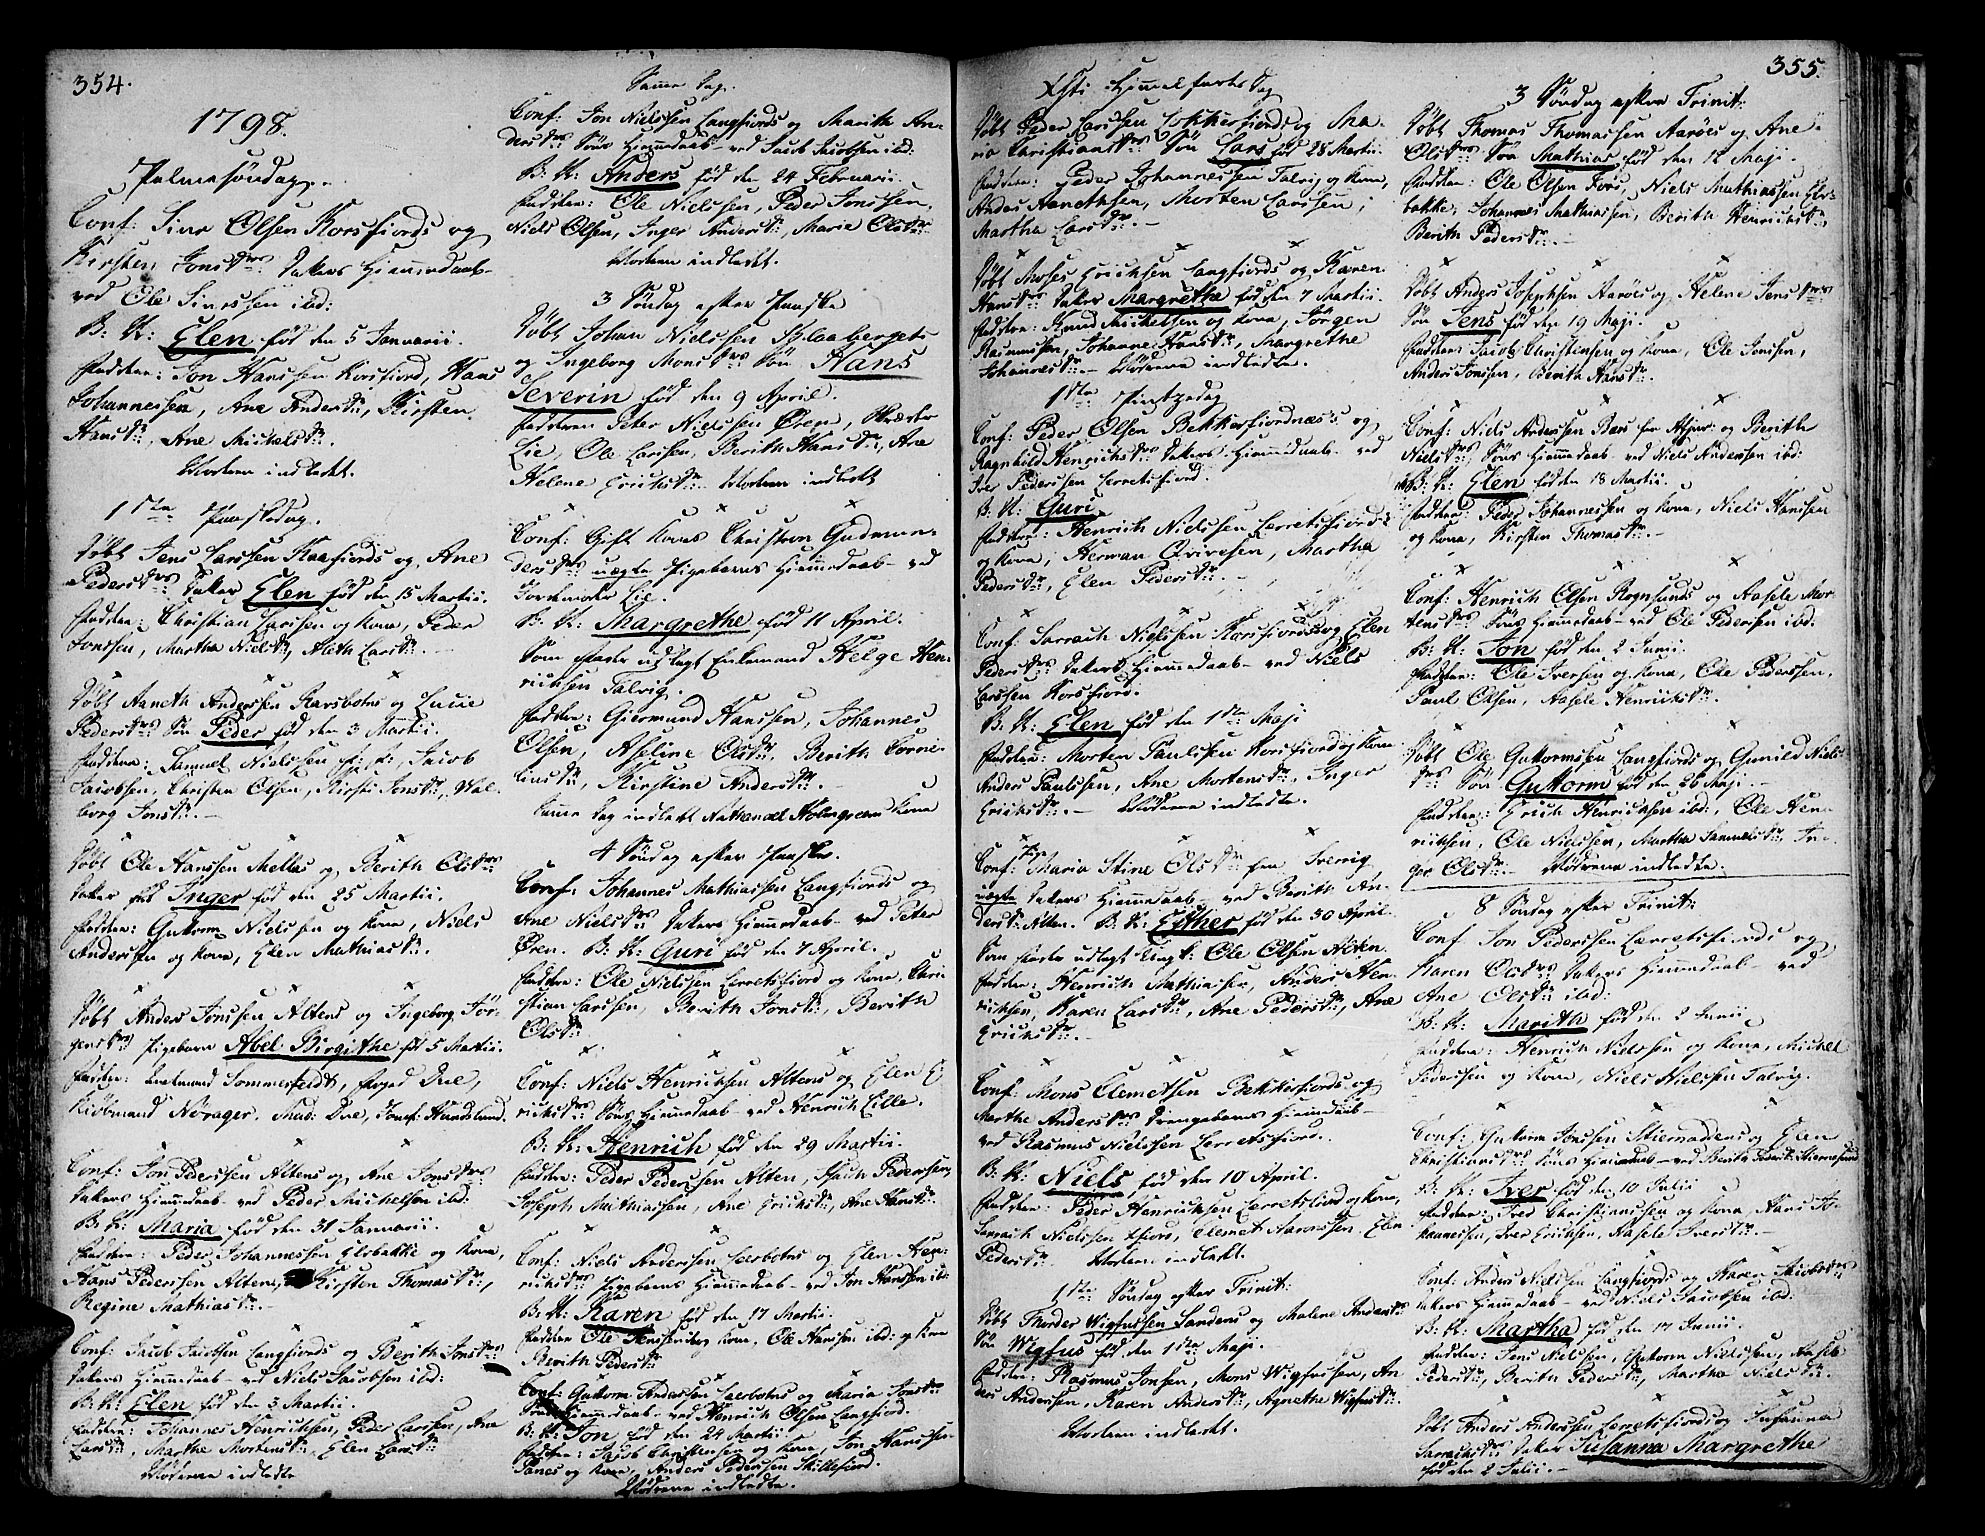 354.
1798.
Palmesöndag.
Conf: Siver Olsen Korsfiords og
Kirsten Jonsdrs Datters Hiemmedaab
ved Ole Sivesen ibd:
B: N: Elen föd den 5 Januarii.
Faddere: Jon Hanssen Korsfiord, Hans
Johannessen, Ane Andersdr, Kirsten
Hansdr, Ane Michelsdr.
Moderen indledet.
1ste Paaskedag.
Döbt Jens Larssen Kaafiords og Ane
Pedersdrs Datter Elen föd den 15 Martii.
Faddere: Christian Larssen og Kone, Peder
Jonssen, Martha Nielsdr, Aleth Larsdr.
Döbt Aaneth Anderssen Rafsbotns og Lucie
Pedersdrs Sön Peder föd den 3 Martii.
Faddere: Samuel Nielssen, Jacob
Jacobsen, Christen Olsen, Kirsti Jonsdr, Wal-
borg Jonsdr.
Döbt Ole Hanssen Mellas og Berith Olsdrs
Datter Inger föd den 25 Martii.
Faddere: Guttorm Nielssen og Kone, Niels
Anderssen og Kone, Elen Mathiasdr.
Döbt Anders Jonssen Altens og Ingeborg Jör-
gensdrs Pigebarn Abel Birgithe föd 5 Martii.
Faddere: Amtmand Sommerfeldt, Foged Due,
Kiöbmand Norager, Mad: Due, Jomf: Hundlund.
Conf: Jon Pederssen Altens og Ane Jonsdrs
Datters Hiemmedaab ved Peder Michelsen ibd:
B: N: Maria föd den 31 Januarii.
Faddere: Peder Johannessen Elvebakke og Kone,
Hans Pederssen Alten, Kirsten Thomasdr,
Regine Mathiasdr.
Conf: Jacob Jacobsen Langfiords og Berith Jonsdrs
Datters Hiemmedaab ved Niels Jacobsen ibd:
B: N: Elen föd den 3 Martii.
Faddere: Johannes Henrichsen, Peder Larssen, Ane
Larsdr, Marthe Mortensdr, Elen Larsdr
Mödrene indledte
Samme Dag.
Conf: Jon Nielssen Langfiords og Marith An-
dersdrs Söns Hiemmedaab ved Jacob Jacobsen ibd:
B: N: Anders föd den 24 Februarii.
Faddere: Ole Nielssen, Peder Jonssen,
Niels Olsen, Inger Andersdr, Marie Olsdr
Moderen indledet.
3 Söndag efter Paaske
Döbt Johan Nielssen Skaabergets
og Ingeborg Monsdrs Sön Hans
Severin föd den 9 April.
Faddere Peter Nielssen Ören,
Lie, Ole Larssen, Berith Hansdr, Ane
Helene Erichsdr Moderen indledet
Conf: Gift Kones Christen Gudmun-
dersdrs uægte Pigebarns Hiemmedaab ved
Jordmoder Lie.
B: N: Margrethe föd 11 April.
Som Fader udlagt Enkemand Helge Hen-
richsen Talvig.
Faddere: Giermund Hanssen, Johannes
Olsen, Aseline Olsdr, Berith Corne-
liusdr, Kirstine Andersdr.
Samme Dag indledet Nathanael Holmgreens Kone
4 Söndag efter Paaske.
Conf: Johannes Mathiassen Langfiords og
Ane Nielsdrs Datters Hiemmedaab ved Peter
Ören. B: N: Guri föd den 7 April.
Faddere: Ole Nielssen Lerretsfiord og Kone, Chri-
stian Larssen, Berith Jonsdr, Berith
Olsdr.
Conf: Niels Henrichsen Altens og Elen E-
richsdrs Söns Hiemmedaab ved Henrich Lille.
B: N: Henrich föd den 29 Martii.
Faddere: Peder Pederssen Alten, Isach Pederssen,
Joseph Mathiassen, Ane Erichsdr, Ane Hansdr.
Conf: Niels Anderssen Leerbotns og Elen Hen-
richsdrs Pigebarns Hiemmedaab ved Jon Hanssen ibd:
B: N: Karen föd den 17 Martii.
Faddere Ole Jenssen og Kone, Ole Hanssen ibd: og Kone
Berith Pedersdr
Conf: Guttorm Anderssen Leerbotns og Maria Jonsdrs
Söns Hiemmedaab ved Henrich Olsen Langfiord.
B: N: Jon föd den 24 Martii
Faddere: Jacob Christensen og Kone, Jon Hanssen
og Kone, Anders Pederssen Skillefiord.
Mödrene indledte.
355.
Xsti Himmelfarts Dag
Döbt Peder Larssen Lokkerfiords og Ma-
ria Christiansdrs Sön Lars föd 28 Martii.
Faddere: Peder Johannessen Talvig og Kone,
Anders Aanethsen, Morten Larssen,
Martha Larsdr.
Döbt Moses Erichsen Langfiords og Karen
Hansdrs Datter Margrethe föd den 7 Martii.
Faddere: Knud Michelsen og Kone, Jörgen
Rasmussen, Johanne Hansdr, Margrethe
Johannesdr. Mödrene indledte.
1ste Pintzedag
Conf: Peder Olsen Bekkerfiordnæss og
Ragnhild Henrichsdrs Datters Hiemmedaab ved
Iver Pederssen Lerretsfiord.
B: N: Guri
Faddere: Henrich Nielssen Lerretsfiord
og Kone, Herman Qvivesen, Martha
Pedersdr, Elen Pedersdr.
Conf: Sarrach Nielssen Korsfiords og Elen
Pedersdrs Datters Hiemmedaab ved Niels
Larssen Korsfiord.
B: N: Elen föd den 1ste Maji
Faddere: Morten Paulssen Korsfiord og Kone,
Anders Paulssen, Ane Mortensdr, Inger
Erichsdr. Mödrene indledte.
Conf: Maria Stine Olsdr fra Sverrig
uægte Datters Hiemmedaab ved Berith An-
dersdr Alten. B: N: Esther föd den 30 April.
Som Fader udlagt Ungk: Ole Olsen Alten.
Faddere: Henrich Mathiassen, Anders Hen-
richsen, Karen Larsdr, Ane Pedersdr, Ane
Erichsdr.
Conf: Mons Clemetsen Bekkerfiords og
Marthe Andersdrs Drengebarns Hiemmedaab
ved Rasmus Nielssen Lerretsfiord.
B: N: Niels föd den 10 April.
Faddere: Peder Henrichsen Lerretsfiord og Kone,
Sarrach Nielssen, Clemet Aaronssen, Elen
Pedersdr. Moderen indledet.
1ste Söndag efter Trinit:
Döbt Thorder Wigfussen Sandens og Malene Andersdrs
Sön Wigfus föd den 1ste Maji.
Faddere: Rasmus Jonsen, Mons Wigfussen, An-
ders Andersen, Karen Andersdr, Agnethe Wigfusdr.
Moderen indledet.
3 Söndag efter Trinit:
Döbt Thomas Thomassen Aaröes og Ane
Olsdrs Sön Mathias föd den 12 Maji.
Faddere: Ole Olsen Fors, Niels Mathiassen Elve-
bakke, Johannes Mathiassen, Berith Henrichsdr,
Berith Pedersdr.
Döbt Anders Josephsen Aaröes og Helene Jensdrs
Sön Jens föd den 19 Maji.
Faddere: Jacob Christensen og Kone, Ole Jonssen,
Anders Jonssen, Berith Hansdr.
Conf: Niels Anderssen og Berithe
Nielsdrs Söns Hiemmedaab ved Niels Andersen ibd:
B: N: Elen föd den 18 Martii.
Faddere: Peder Johannessen og Kone, Niels Hanssen
og Kone, Kirsten Thomasdr.
Conf: Henrich Olsen Rognsunds og Aasele Mor-
tensdrs Söns Hiemmedaab ved Ole Pederssen ibd:
B: N: Jon föd den 2 Junii.
Faddere: Ole Iversen og Kone, Ole Pederssen,
Paul Olsen, Aasele Henrichsdr.
Döbt Ole Guttormsen Langfiords og Gunild Niels-
drs Sön Guttorm föd den 26 Maji.
Faddere: Erich Henrichsen ibd:, Ole Hen-
richsen, Ole Nielssen, Martha Samuelsdr, In-
ger Olsdr. Mödrene indledte.
8 Söndag efter Trinit:
Conf Jon Pederssen Lerretsfiords og
Karen Olsdrs Datters Hiemmedaab ved
Ane Olsdr ibd:
B: N: Marith föd den 2 Junii
Faddere: Henrich Nielssen og Kone, Michel
Pederssen og Kone, Niels Nielssen Talvig.
Conf: Guttorm Jonssen Stiernödens og Elen
Christiansdrs Söns Hiemmedaab ved Berith Stiernesund
B: N: Iver föd den 10 Julii
Faddere: Christianssen og Kone, Hans Jo-
hannessen, Iver Erichsen, Aasele Iversdr.
Conf: Anders Nielssen Langfiords og Karen Jacobsdrs
Datters Hiemmedaab ved Niels Jacobsen ibd:
B: N: Martha föd den 17 Junii.
Faddere: Jens Nielssen, Guttorm Nielssen, Aasele
Pedersdr, Berith Pedersdr, Martha Nielsdr.
Döbt Anders Anderssen Lerretsfiords og Susanna
Sarrachsdrs Datter Susanna Margrethe
föd den 2 Julii.